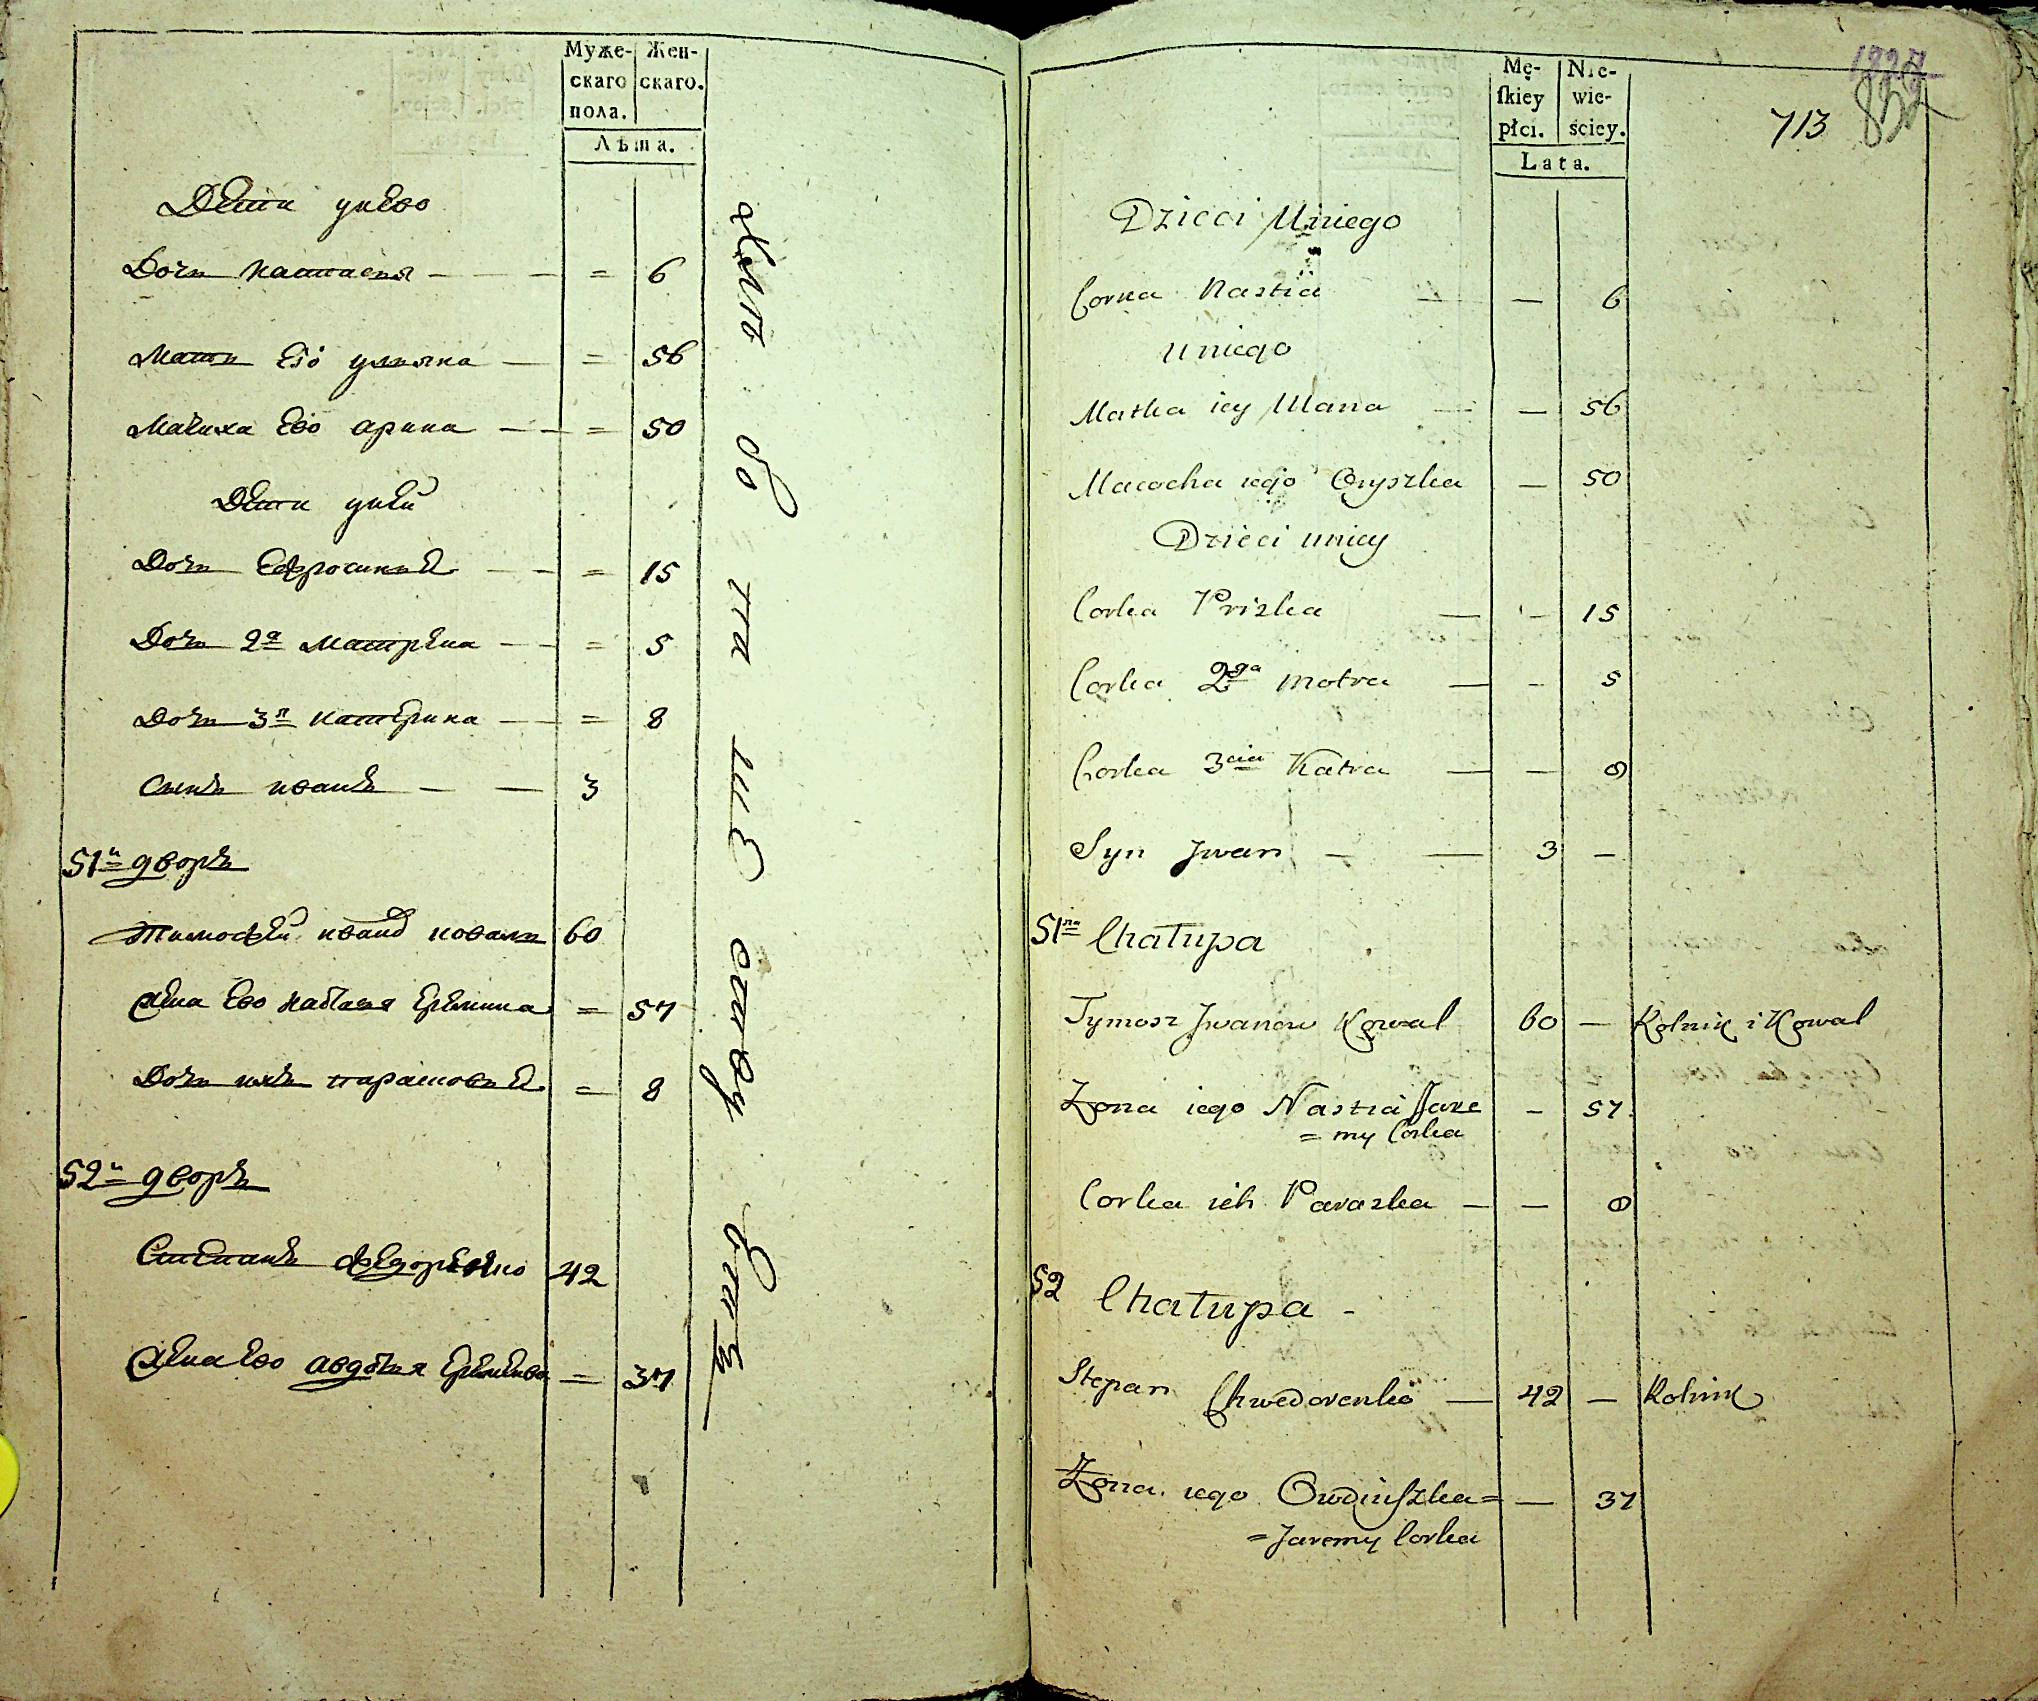 Муже-
скаго
пола.
Жен-
скаго.
Лѣта.
Дети унево
Дочи настасья — — — = 6
Мати Ево уляна — = 56
Мачиха Ево арина — — = 50
Дети уней
Дочи Ефросиния — — = 15
Дочи 2а Матрена — — = 5
Дочи 3я катерина — — = 8
Сынъ иванъ — — 3
51й дворъ
Тимофей иванов коваль 60
Жена Ево = 57
Дочи ихъ = 8
52й дворъ
Степанъ Федоренко 42
Жена Ево авдотья = 37
Mę-
ſkiey
płci.
Nie-
wie-
ściey.
Lata.
713
Dzieci Uniego
Corka Nastia — — 6
Uniego
Matka iey Ulana — — 56
Macocha iego Oryszka — 50
Dzieci uniey
Corka Priska — — 15
Corka 2ga Motra — - 5
Corka 3cia Katra — — 8
Syn Jwan — — 3 —
51na Chałupa
Tymosz Jwanow Kowal 60 — Rolnik i Kowal
Żona iego Nastia Jare
= my Corka - 57
Corka ich Paraska — — 8
52 Chałupa -
Stepan Chwedorenko — 42 — Rolnik
Żona iego Owdiuſzka = — 37
= Jaremy Corka